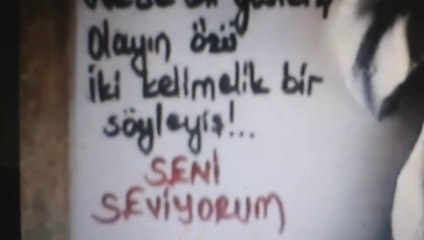 Olayın özü
iki kelimelik bir
söyleyiş!..
SENİ
SEVİYORUM